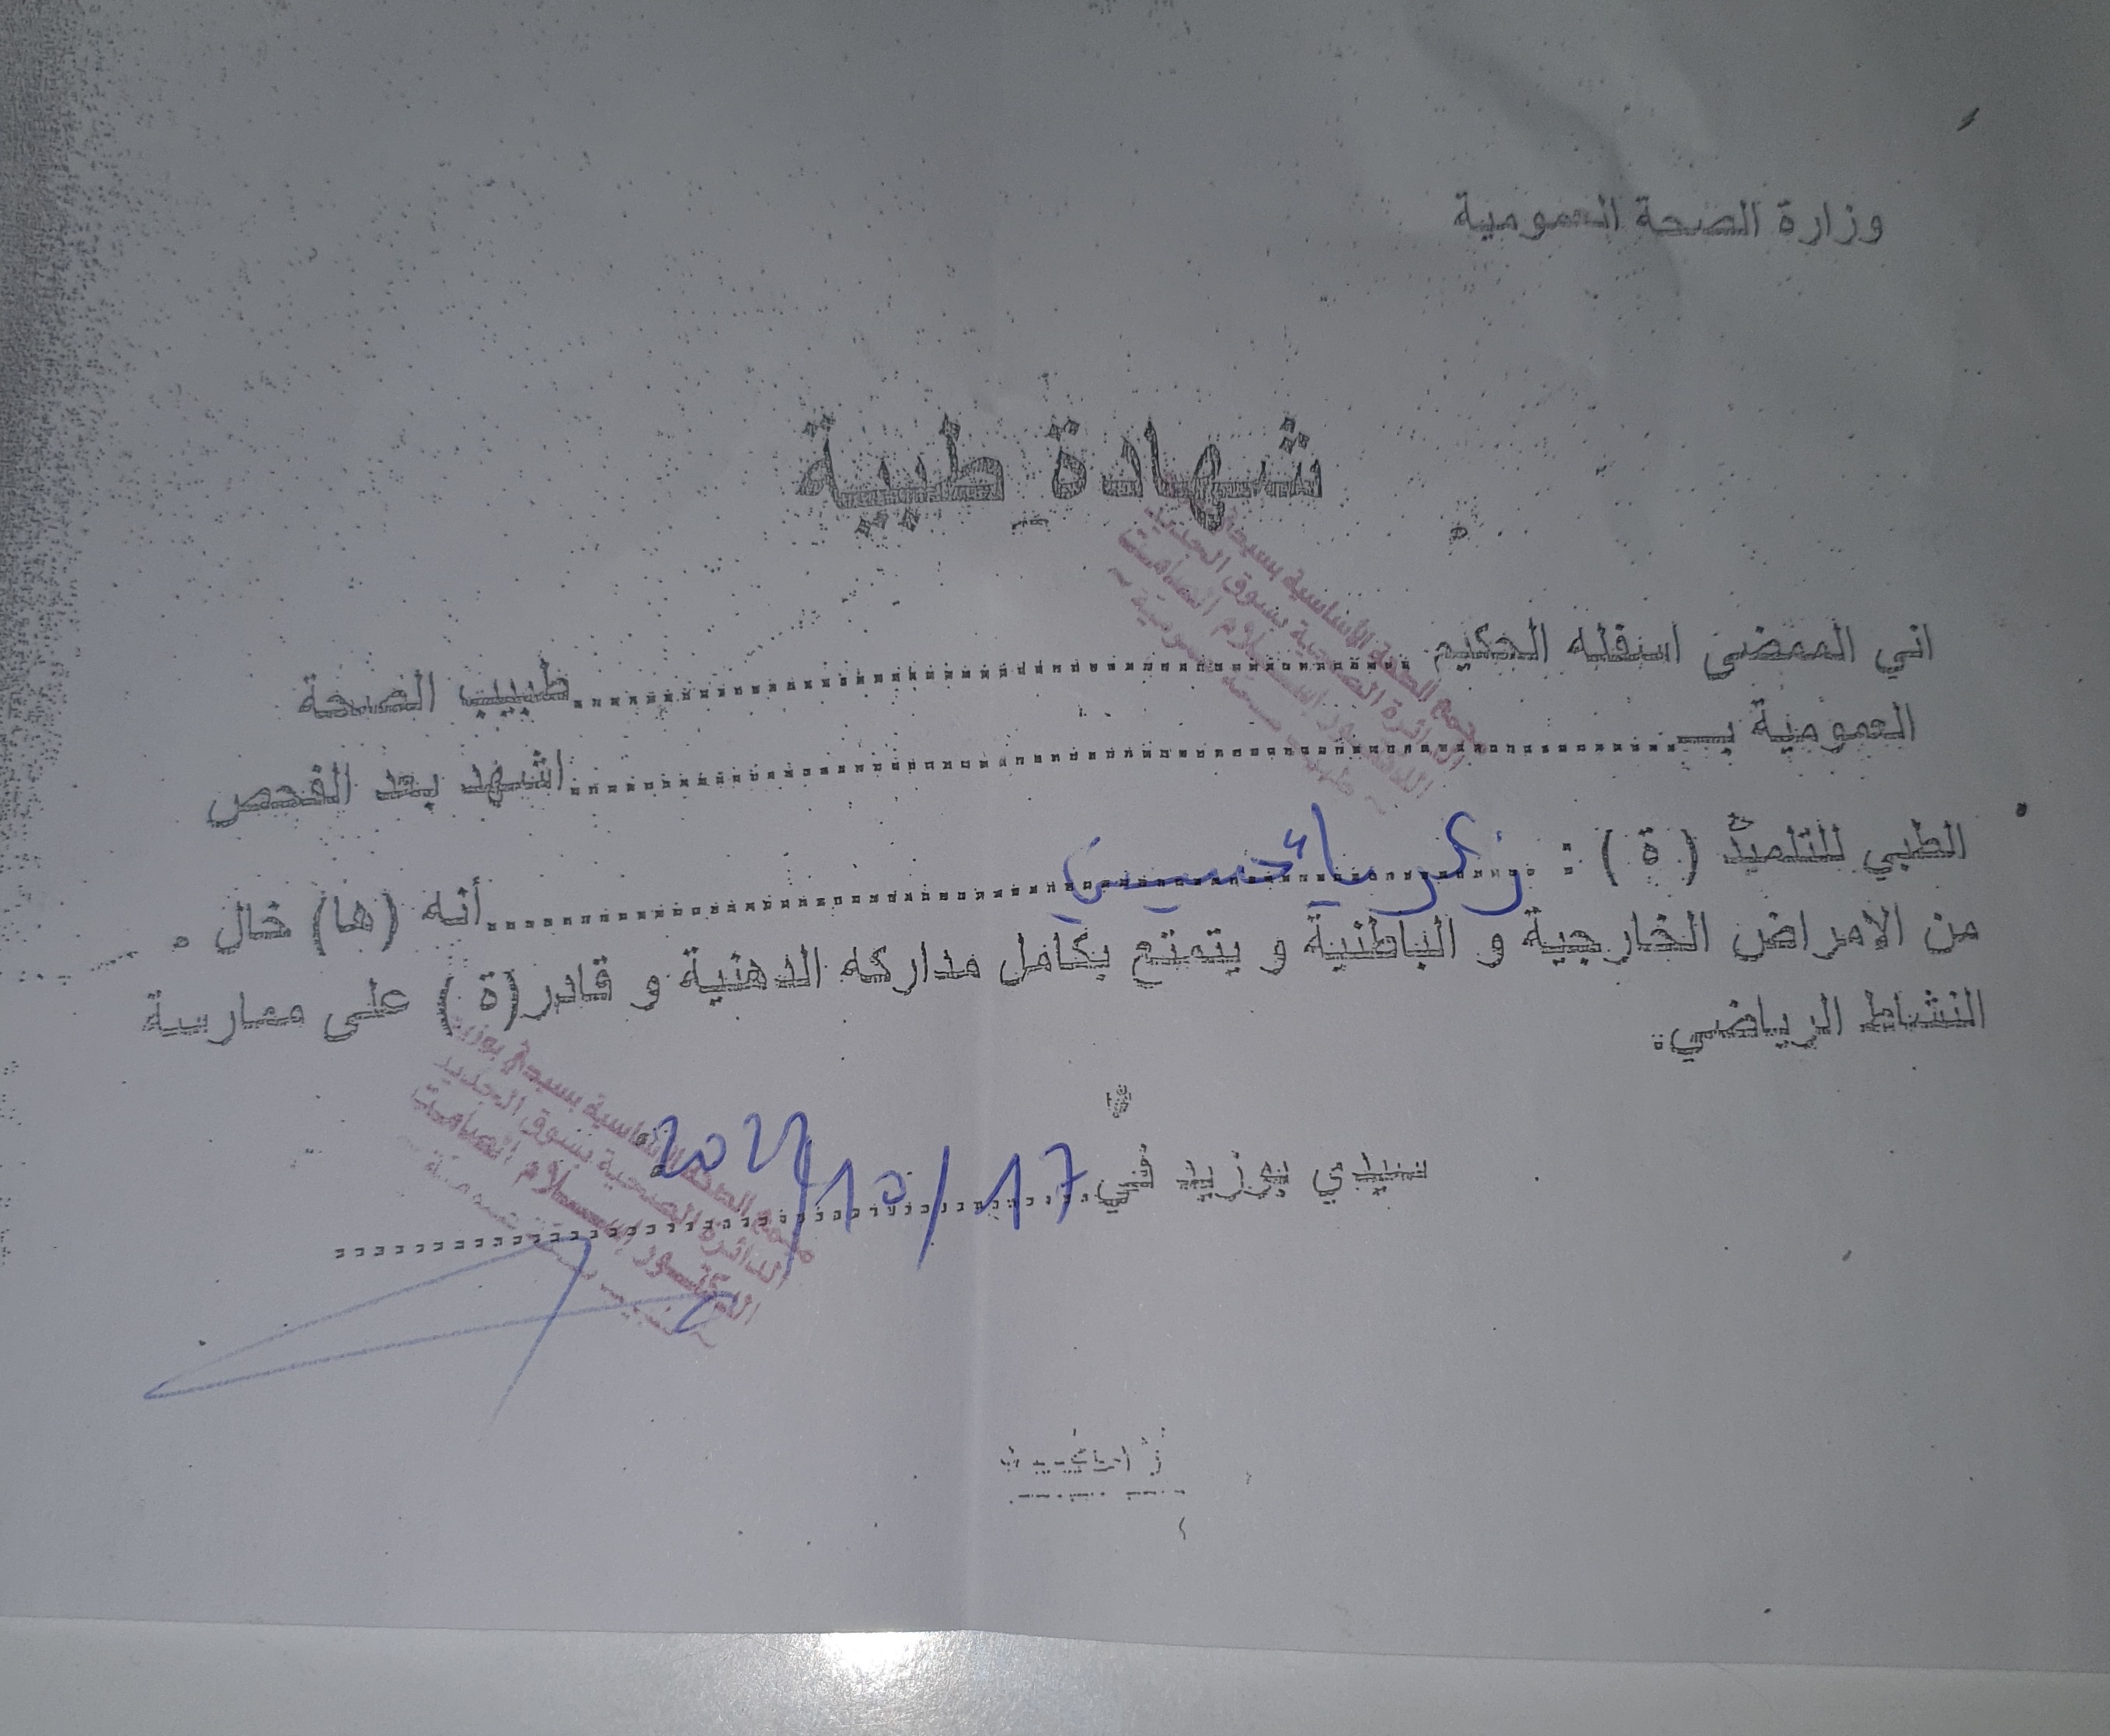 وزارة الصحة العمومية
شهادة طبية
اني الممضى اسفله الحكيم ........................................ طبيب الصحة
العمومية بـ ........................................ اشهد بعد الفحص
الطبي للتلميذ ( ة ) : زكرياء حسيني ........................................ أنه (ها) خال
من الامراض الخارجية و الباطنية و يتمتع بكامل مداركه الدهنية و قادر (ة ) على ممارسة
النشاط الرياضي.
مجمع الصحة الأساسية بسيدي
الدائرة الصحية بسوق الجديد
الدكتور
سيدي بوزيد في 17/10/
مجمع الصحة الأساسية بسيدي بوزيد
الدائرة الصحية بسوق الجديد
الدكتور